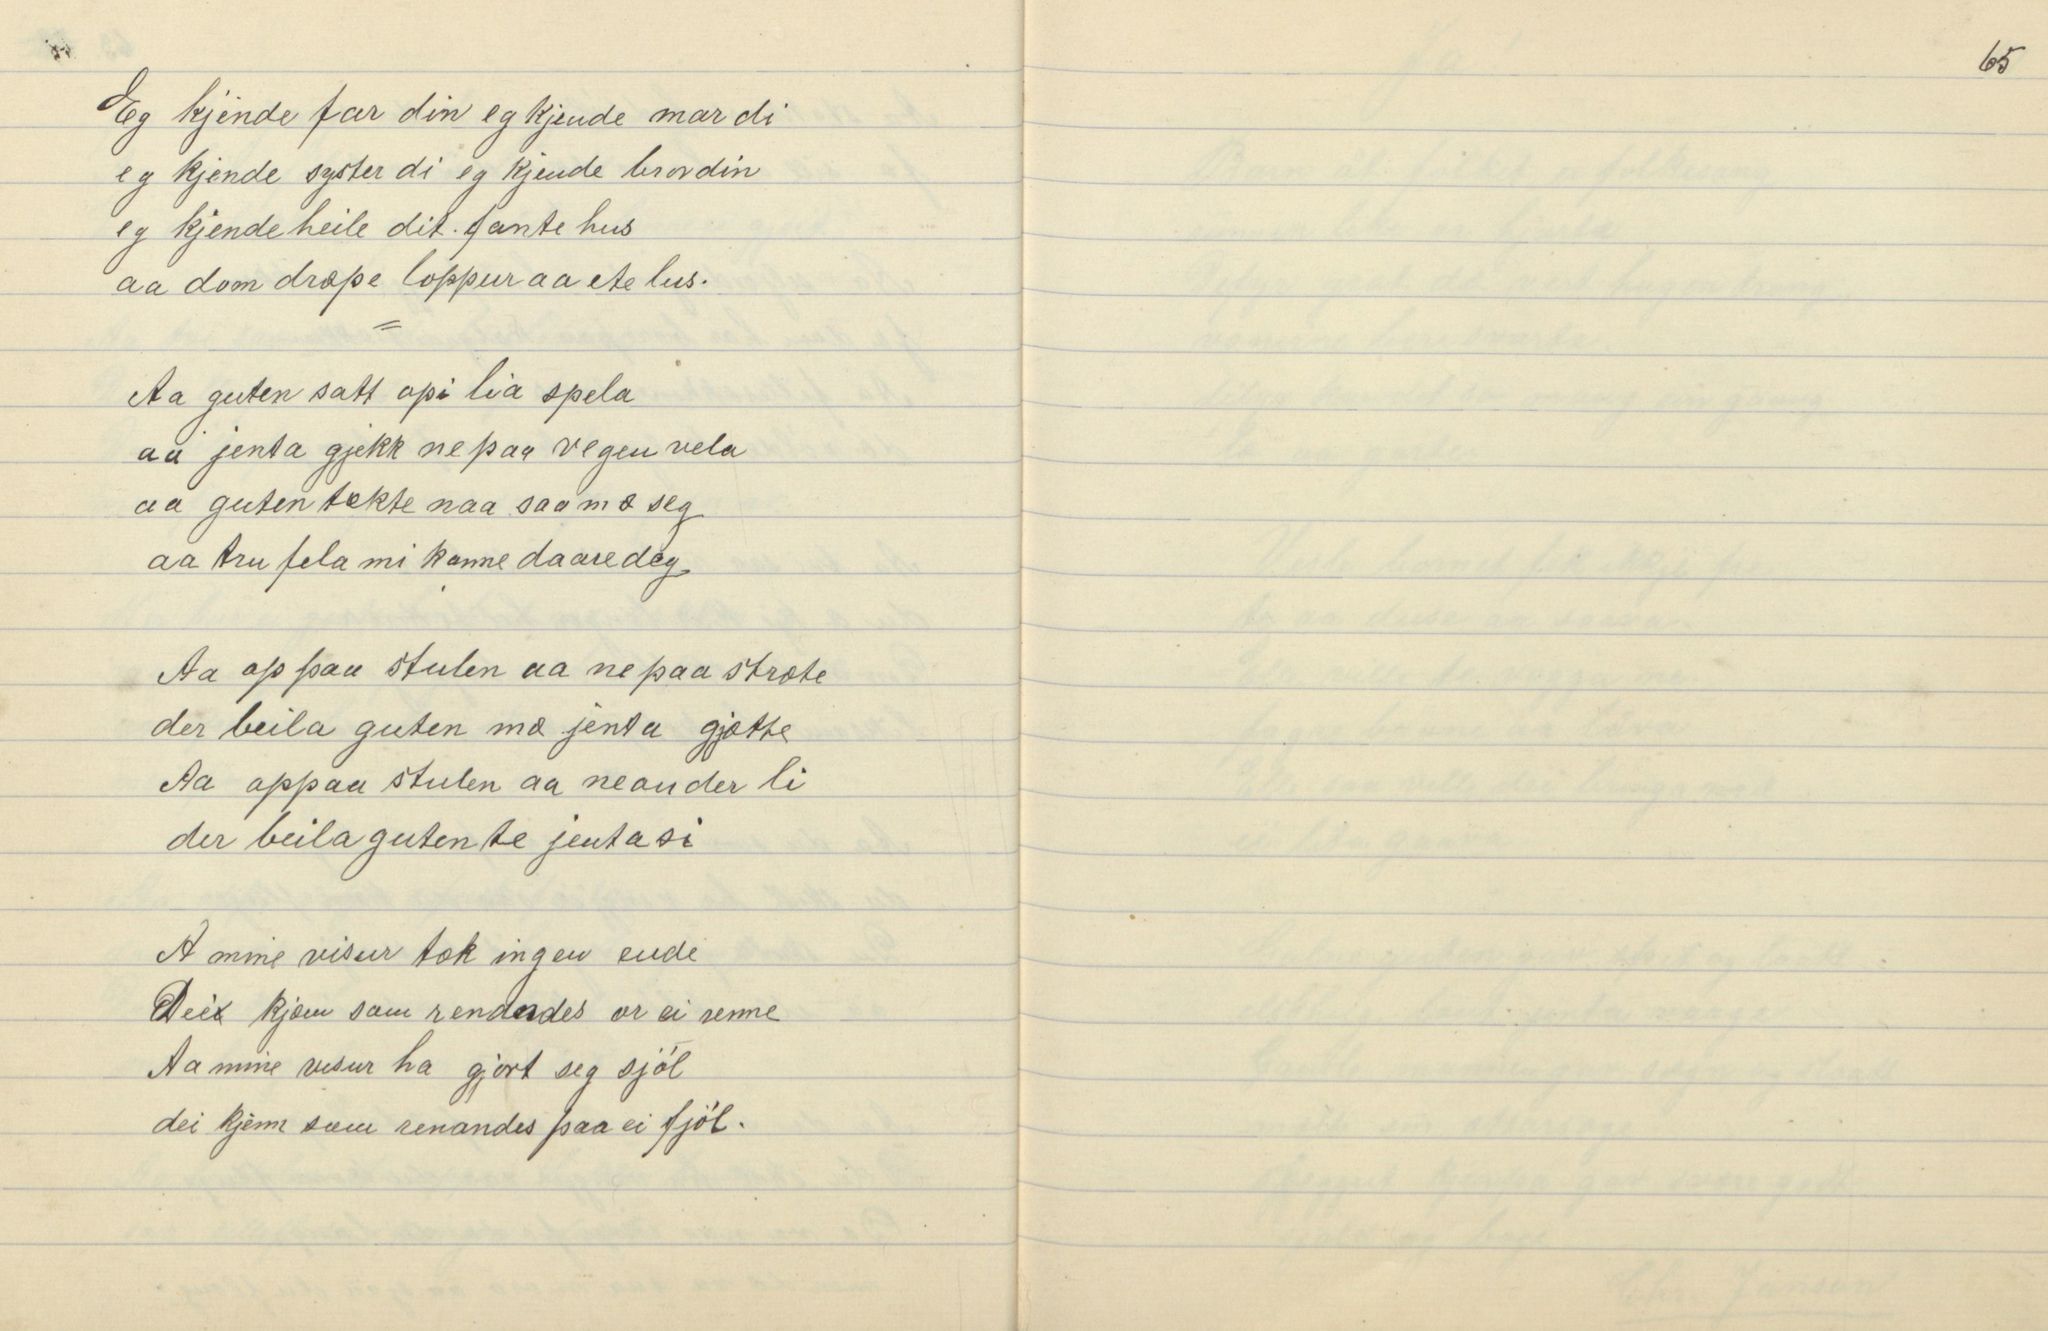 65
Eg kjende far din eg kjende mor di
eg kjende syster di eg kjende bror din
eg kjende heile dit fante hus
aa dom dræpe loppur aa ete lus.
Aa guten satt opi lia spela
aa jenta gjekk ne paa vegen vela
aa guten tækte naa saa mæ seg
aa tru fela mi kanne daare deg
Aa op paa stulen aa ne paa stræte
der beila guten mæ jenta gjætte
Aa oppaa stulen aa ne onder li
der beila guten te jenta si
A mine visur tæk ingen ende
Dei kjæm som renandes or ei renne
Aa mine visur ha gjort seg sjöl
dei kjem som renandes paa ei fjöl.